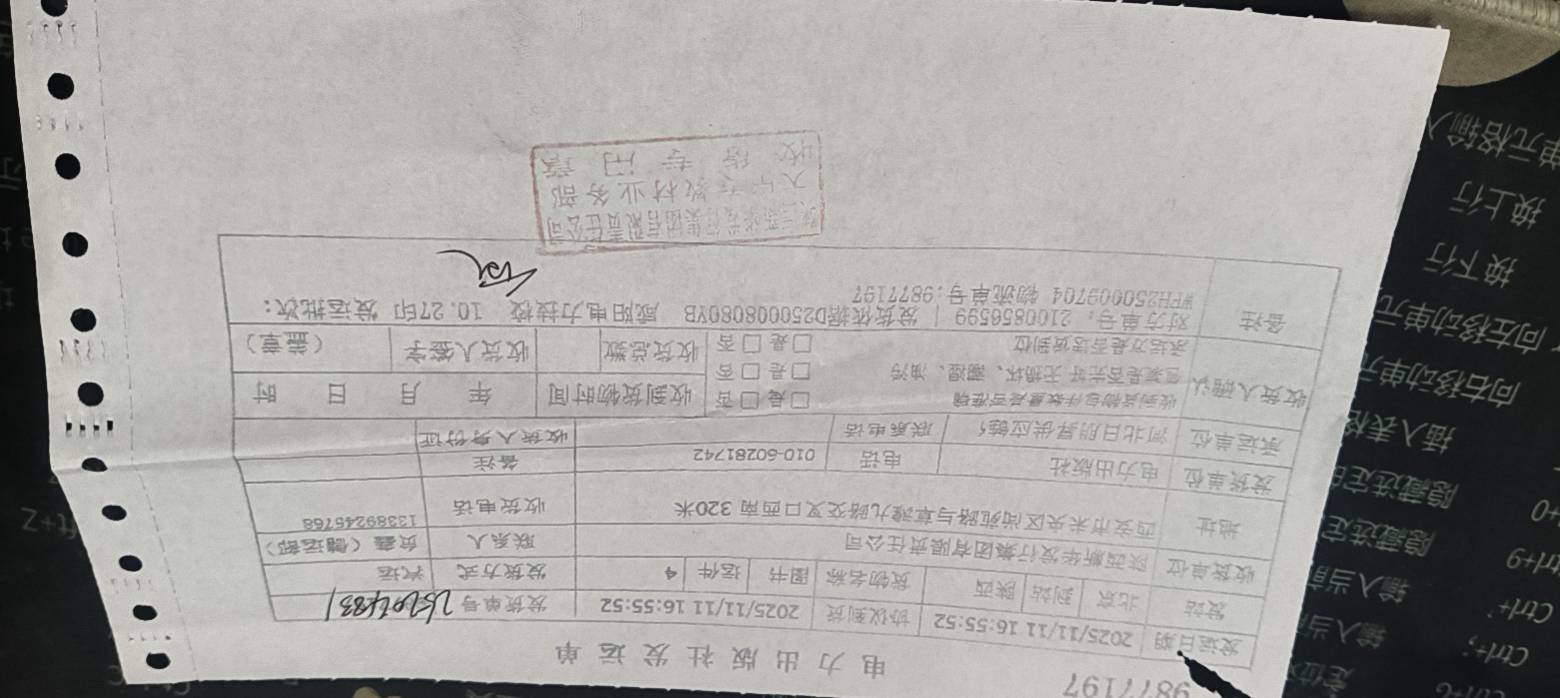 9877197
电力出版社发运单
发运日期 2025/11/11 16:55:52 协议到货 2025/11/11 16:55:52 发货单号
发站 北京 到站 陕西 货物名称 图书 运件 4 发货方式 汽运
收货单位 陕西新华发行集团有限责任公司 联系人 贠鑫（储运部）
地址 西安市未央区尚苑路与草滩九路交叉口西南 320米 收货电话 13389245768
发货单位 电力出版社 电话 010-60281742 备注
承运单位 河北日朋昇供应链 联系电话 收货人身份证
收货人确认 收到货物总件数量是否准确 □是 □否 收到货物时间 年 月 日 时
包装是否完好 无损坏、潮湿、油污 □是 □否
承运方是否送货到位 □是 □否 收货总数 收货人签字 （盖章）
备注 对方单号: 2100856599 | 发货依据D250008080YB 咸阳电力技校 10.27印 发运批次:
WPH250009704 物流单号:9877197
陕西新华发行集团有限责任公司
大中专教材业务部
收货专用章
单元格输入
换上行
换下行
向左移动单元
向右移动单元
插入表格
隐藏选定的
隐藏选定
Ctrl+9
输入当前
Ctrl+;
输入当
定位